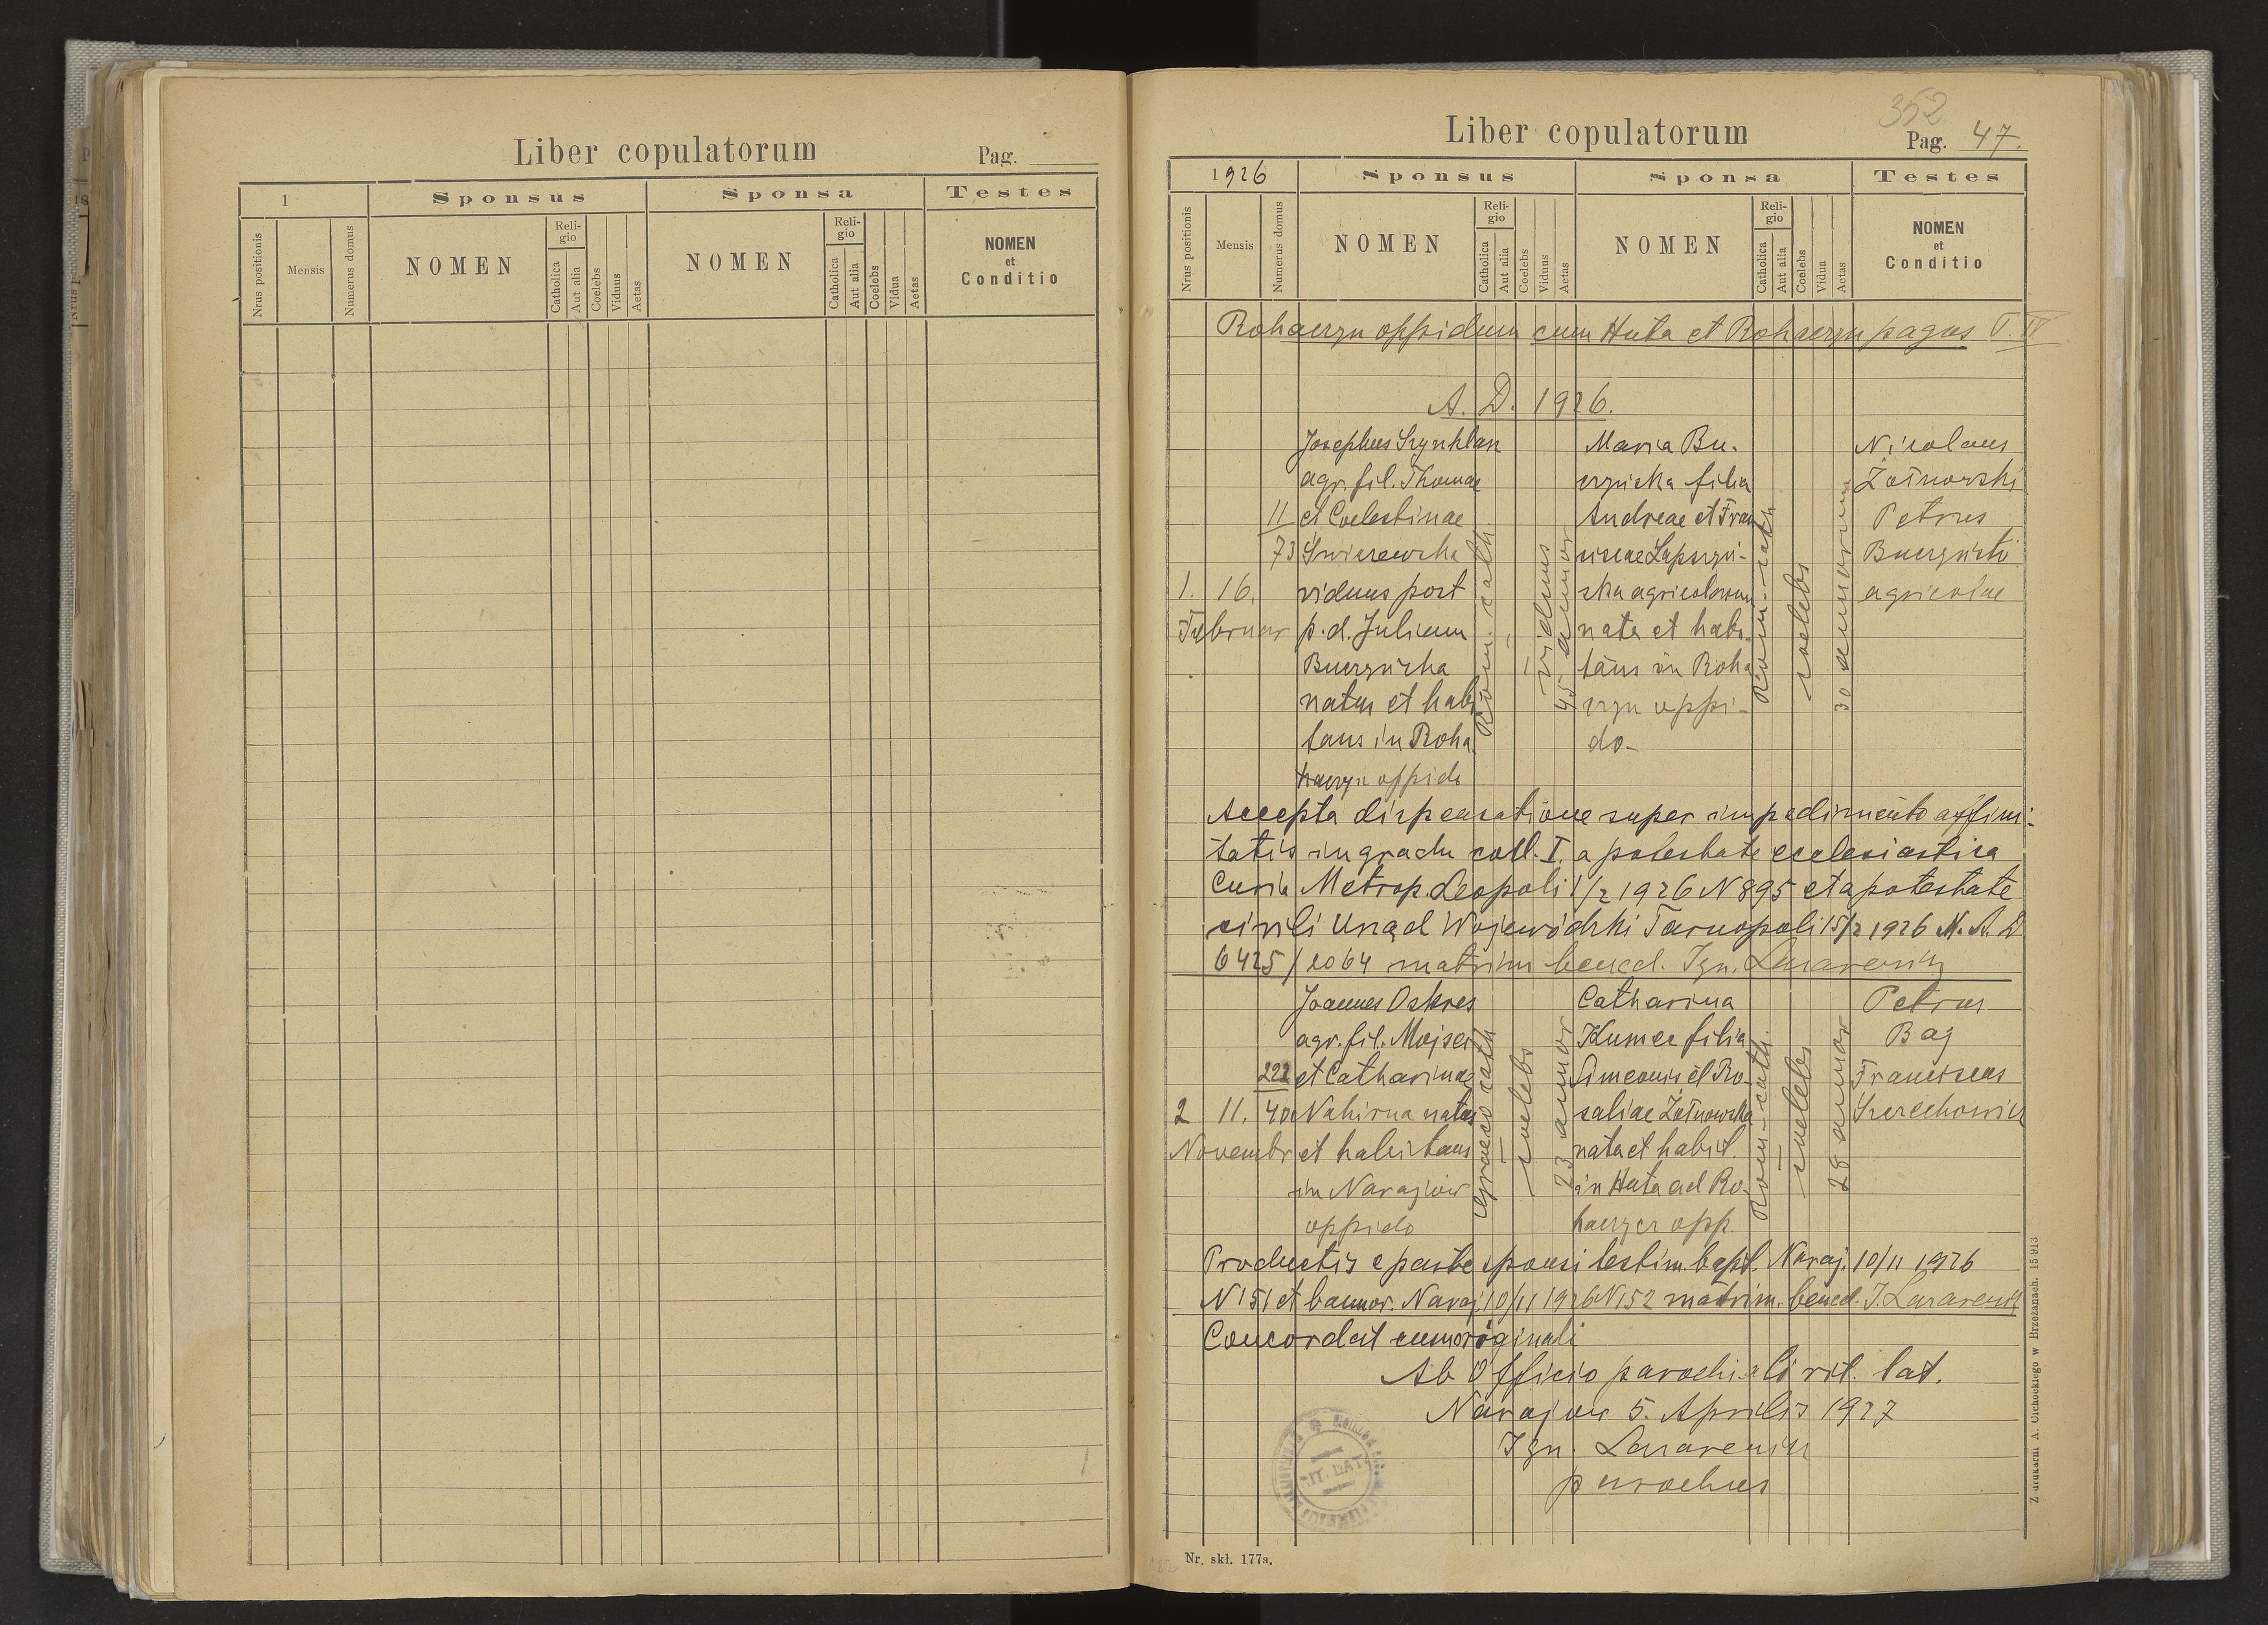 Liber copulatorum
Pag.
1
Sponsus
Sponsa
Testes
Nrus positionis
Mensis
Numerus domus
NOMEN
Religio
Catholica
Aut alia
Coelebs
Viduus
Aetas
NOMEN
Religio
Catholica
Aut alia
Coelebs
Vidua
Aetas
NOMEN
et
Conditio
352
Liber copulatorum
Pag. 47.
1926
Sponsus
Sponsa
Testes
Nrus positionis
Mensis
Numerus domus
NOMEN
Religio
Catholica
Aut alia
Coelebs
Viduus
Aetas
NOMEN
Religio
Catholica
Aut alia
Coelebs
Vidua
Aetas
NOMEN
et
Conditio
Rohaczyn oppidum cum Huta et Rohaczyn pagus T. IV
A. D. 1926.
1. 16.
Februar
11
73
Josephus Szynklarz
agr. fil. Thomae
et Coelestinae
viduus post
p. d. Juliam
Buczyńska
natus et habi
tans in Roha
haczyn oppido
Rom. cath
viduus
45 annor
Maria Bu-
czyńska filia
Andreae et Fran
ciscae Łapczyń-
ska agricolarum
nata et habi-
tans in Roha
czyn oppi-
do-
Rom.-cath
coelebs
30 annorum
Nicolaus
Żołnowski
Petrus
Buczyński
agricolae
Accepta dispensatione super impedimento affini-
tatis in gradu coll. I. a potestate ecclesiastica
Curia Metrop. Leopoli 1/2 1926 N 895 et a potestate
civili Urząd Wojewódzki Tarnopoli 15/2 1926 N. A. D
6425/2064 matrim bened. Ign. Lazarewicz
2 11.
Novembr
222
40
Joannes Oskres
agr. fil. Moysei
et Catharinae
Nahirna natus
et habitans
in Narajów
oppido
Graeco cath
coelebs
23 annor
Catharina
Kumec filia
Simeonis et Ro-
saliae Żołnowska
nata et habit.
in Huta ad Ro-
haczyn opp.
Rom.-cath.
coelebs
28 annor
Petrus
Baj
Franciscus
Szczechowicz
Productis e parte sponsi testim. bapt. Naraj. 10/11 1926
N 151 et bannor. Naraj. 10/11 1926 N 152 matrim. bened. I. Lazarewicz
Concordat cum originali
Ab Officio parochiali rit. lat.
Narajow 5. Aprilis 1927
Ign. Lazarewicz
parochus
RIT. LAT.
Nr. skł. 177a.
Z drukarni A. Cichockiego w Brzeżanach. 15/913